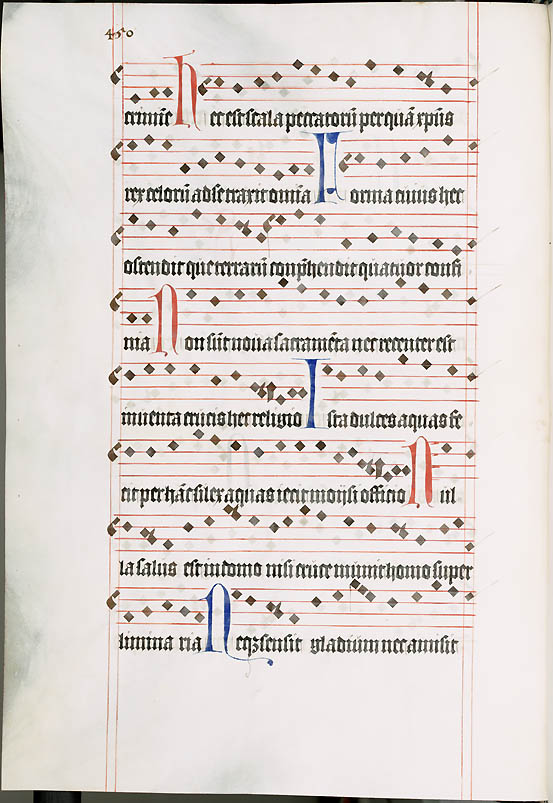 450
crimīe Hec est scala peccatorū per quā xp̄us
rex celorū ad se traxit omīa Forma cuius hec
ostendit que terrarū conp̄hendit quatuor confi
nia Non sūt noua sacramēta nec recenter est
inuenta crucis hec religio Ista dulces aquas fe
cit per hāc silex aquas iecit moijsi officio Nul
la salus est in domo nisi cruce munit homo super
limina ria Neqꝫ sensit gladium nec amisit